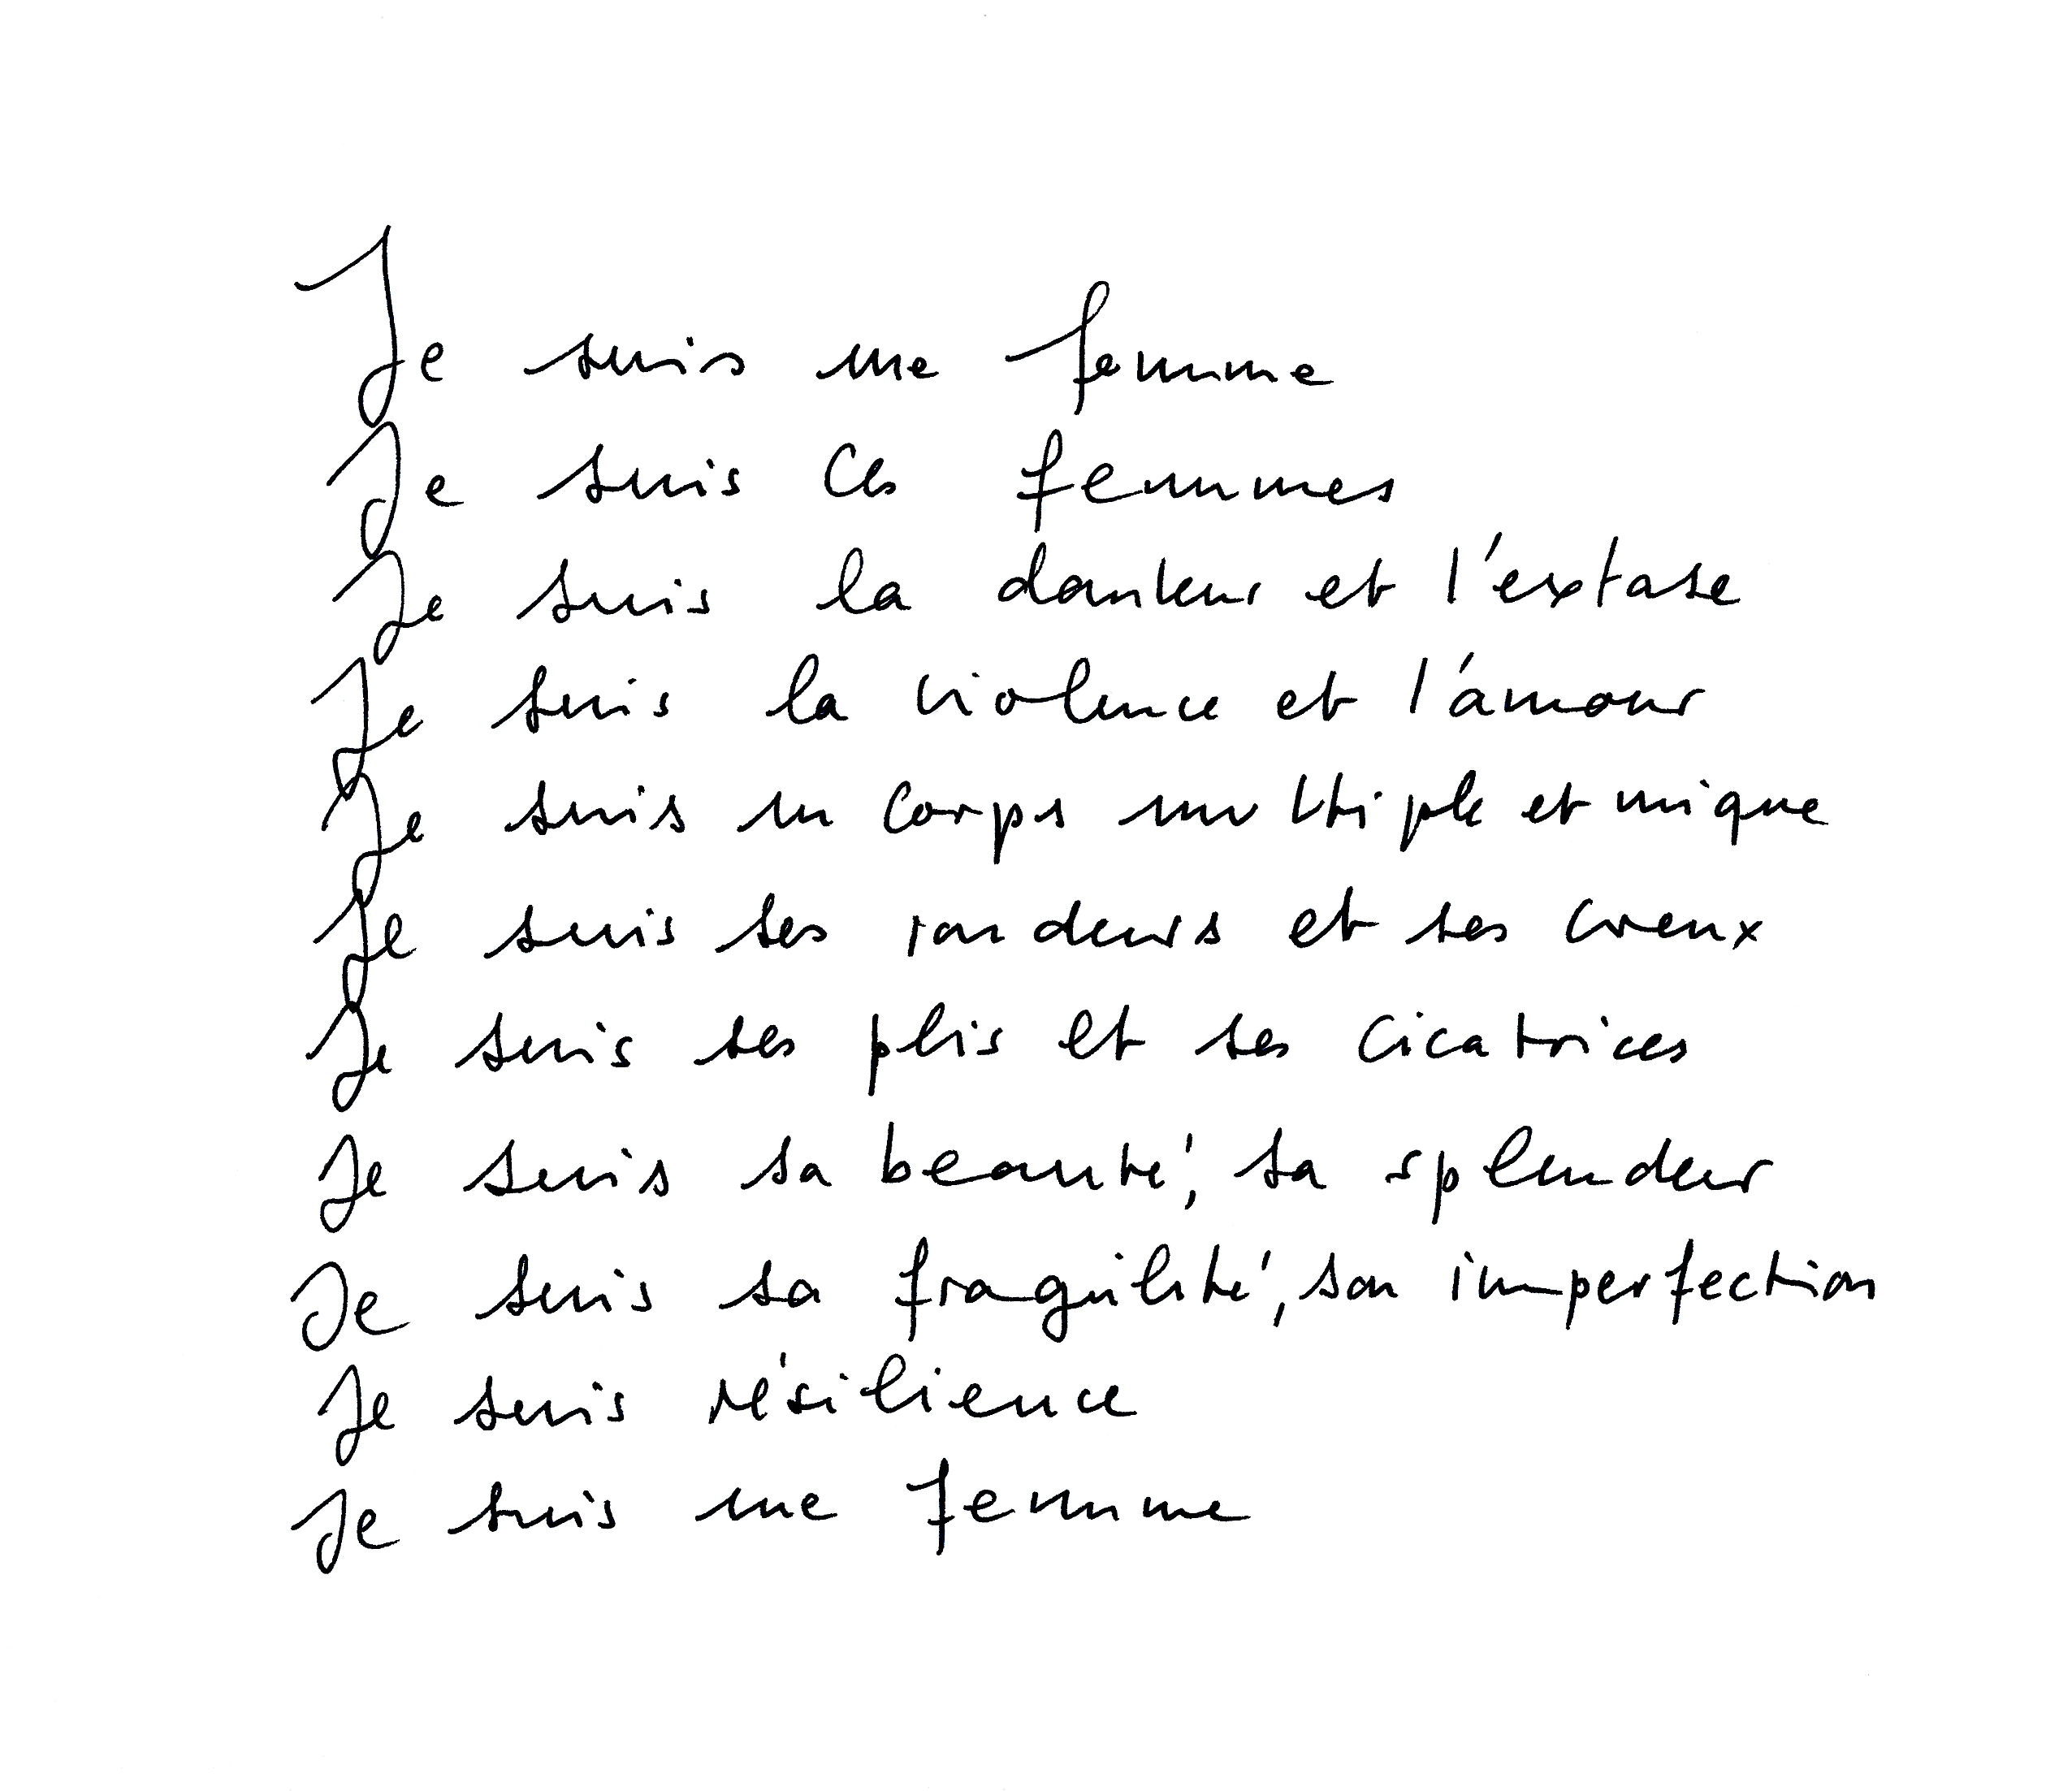 Je suis une femme
Je suis ces femmes
Je suis la douleur et l'extase
Je suis la violence et l'amour
Je suis un corps multiple et unique
Je suis ses rondeurs et ses creux
Je suis ses plis et ses cicatrices
Je suis sa beauté, sa splendeur
Je suis sa fragilité, son imperfection
Je suis résilience
Je suis une femme